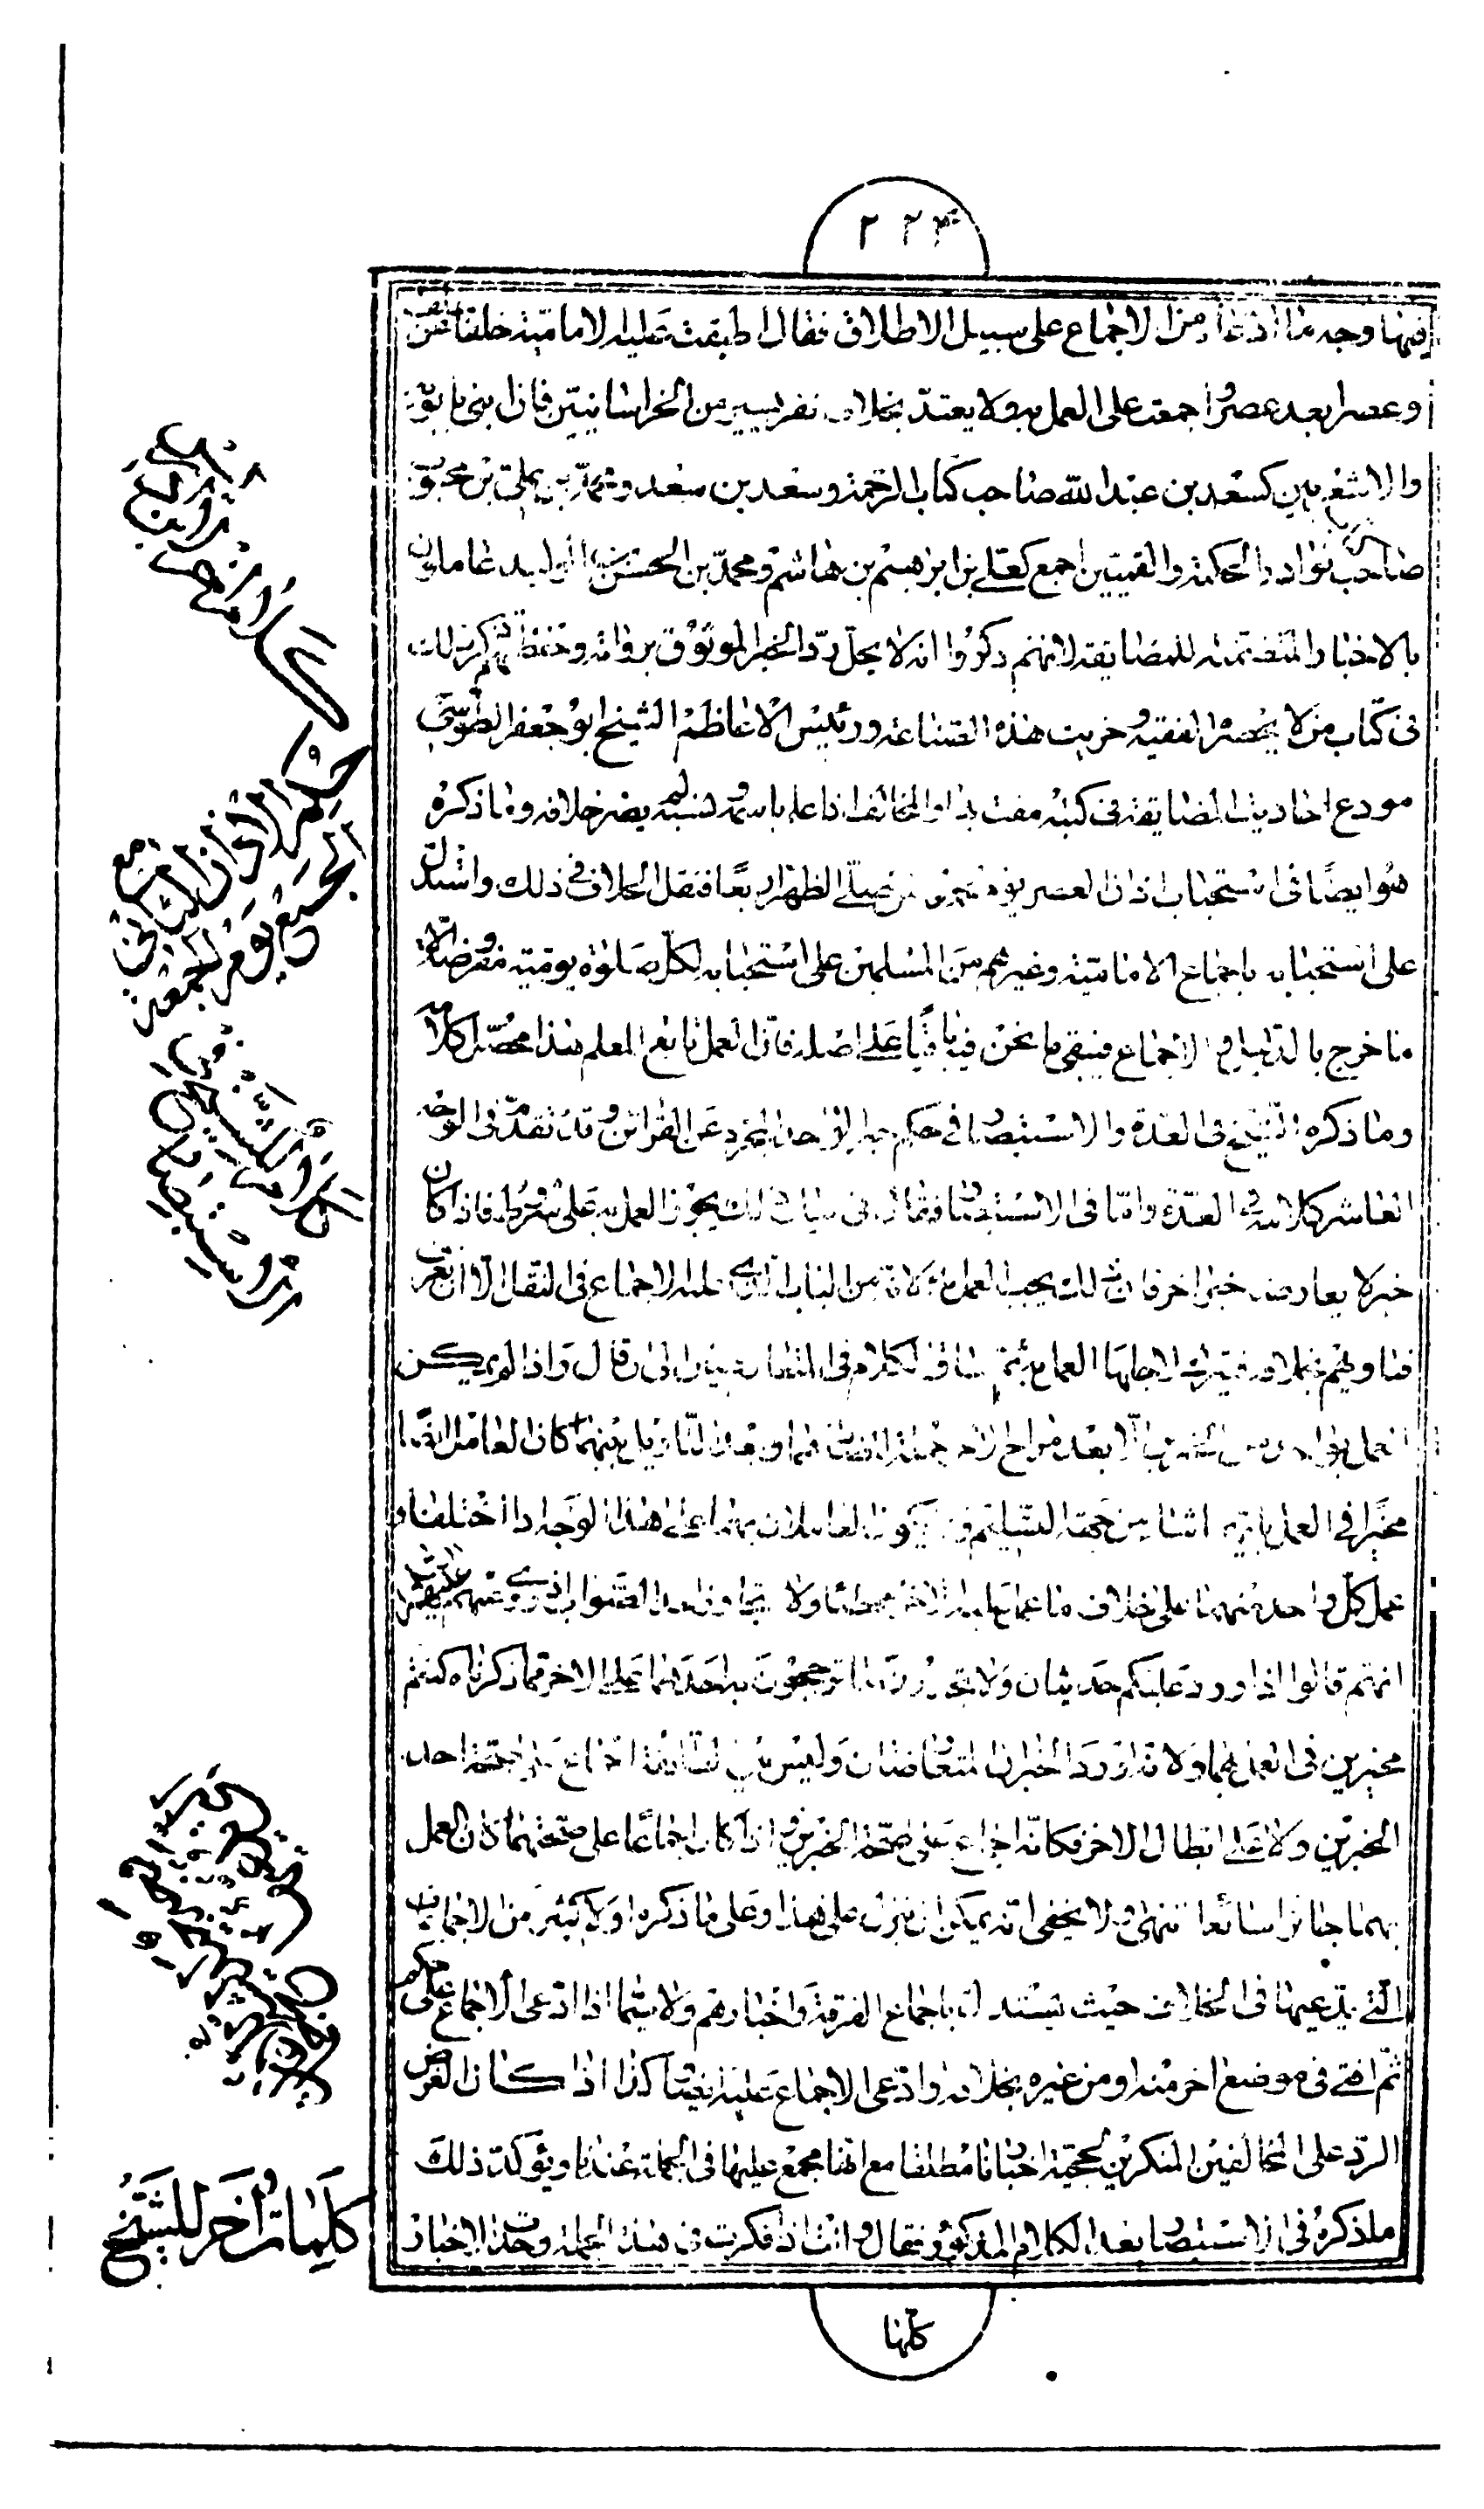 ٢٢٤
فيها وجه ما ادعاه من الاجماع على سبيل الاطلاق فقال اطبقت عليه الامامية خلفا عن سلف
وعصرا بعد عصر واجمعت على العمل به ولا يعتد بخلاف نفر يسير من الخراسانيين فان ابني بابويه
والاشعريين كسعد بن عبد الله صاحب كتاب الرحمة وسعد بن سعد ومحمد بن علي بن محبوب
صاحب نوادر الحكمة والقميين اجمع كعلي بن ابرهيم بن هاشم ومحمد بن الحسن بن الوليد عاملون
بالاخبار المتضمنة للمضايقة لانهم ذكروا انه لا يحل رد الخبر الموثوق برواته وحفظتهم ذكر ذلك
في كتاب من لا يحضره الفقيه وخريت هذه الصناعة ورئيس الاعاظم الشيخ ابو جعفر الطوسي
مودع احاديث المضايقة في كتبه مفت بها والمخالف اذا علم باسمه ونسبه لم يضر خلافه وما ذكره
هو ايضا في استحباب اذان العصر يوم لمن صلى الظهر اربعا فنقل الخلاف في ذلك واستدل
على استحبابه باجماع الامامية وغيرهم من المسلمين على استحبابه لكل صلوة يومية مفروضة الا
ما خرج بالدليل والاجماع فيبقى ما نحن فيه باقيا على اصله فان العمل تابع العلم هذا محصل كلامه
وما ذكره الشيخ في العدة والاستبصار في حكم خبر الواحد المجرد عن القرائن وقد تقدم في الوجه
العاشر كلامه في العدة واما في الاستبصار فقال في بيان ذلك يجوز العمل به على شروط فاذا كان
خبر لا يعارضه خبر اخر فان ذلك يجب العمل به لانه من الباب الذي عليه الاجماع في النقل الا ان تعرف
فتاويهم بخلافه فيترك لاجلها العمل به ثم ساق الكلام في المتعارضين الى ان قال واذا لم يمكن
العمل بواحد من الخبرين الا بعد طرح الاخر جملة لتضادهما وبعد التاويل بينهما كان العامل ايضا
مخيرا في العمل بايهما شاء من جهة التسليم ولا يكون العاملان بهما على هذا الوجه اذا اختلفا و
عمل كل واحد منهما على خلاف ما عمل عليه الاخر مخطئا ولا متجاوزا حد الصواب اذ روي عنهم عليهم السلام
انهم قالوا اذا ورد عليكم حديثان ولا تجدون ما ترجحون به احدهما على الاخر مما ذكرناه كنتم
مخيرين في العمل بهما ولانه اذا ورد الخبران المتعارضان وليس بين الطائفة اجماع على صحة احد
الخبرين ولا على ابطال الاخر فكانه اجماع على صحة الخبرين واذا كان اجماعا على صحتهما كان العمل
بهما جائزا سائغا انتهى ولا يخفى انه يمكن ان ينزل على هذا وعلى ما ذكره اولا كثير من الاجماعات
التي يدعيها في الخلاف حيث يستند الى اجماع الفرقة واخبارهم ولا سيما اذا ادعى الاجماع على حكم
ثم افتى في موضع اخر منه او من غيره بخلافه وادعى الاجماع عليه ايضا كذا اذا كان الغرض
الرد على المخالفين المنكرين لحجية اخبارنا مطلقا مع انها مجمع عليها في الجملة عندنا ويؤكد ذلك
ما ذكره في الاستبصار بعد الكلام المذكور فقال وانت اذا فكرت في هذه الجملة وجدت الاخبار
كلها
حكم الاذان الثاني
يوم الجمعة
كلمات اخر للشيخ